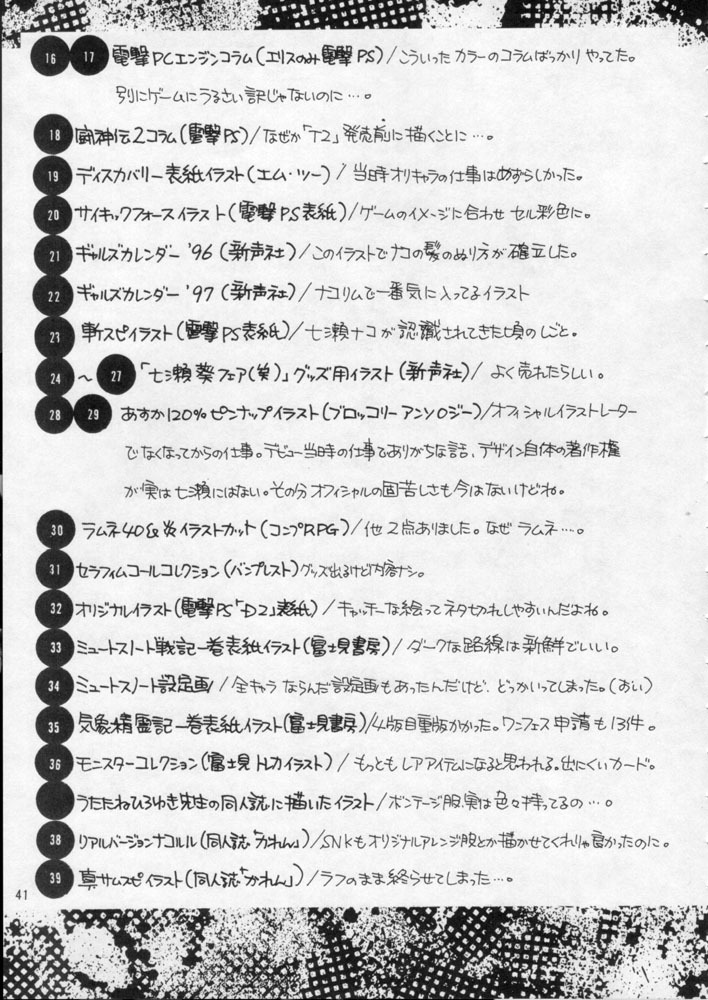 16 17 電撃PCエンジンコラム(エリスのみ電撃PS)/こういったカラーのコラムばっかりやってた。
別にゲームにうるさい訳じゃないのに…。
18 闘神伝2コラム(電撃PS)/なぜか「T2」発売前に描くことに…。
19 ディスカバリー表紙イラスト(エム・ツー)/当時オリキャラの仕事はめずらしかった。
20 サイキックフォースイラスト(電撃PS表紙)/ゲームのイメージに合わせセル彩色に。
21 ギャルズカレンダー'96(新声社)/このイラストでナコの髪のぬり方が確立した。
22 ギャルズカレンダー'97(新声社)/ナコリムで一番気に入ってるイラスト
23 斬スピイラスト(電撃PS表紙)/七瀬ナコが認識されてきた頃のしごと。
24〜27 「七瀬葵フェア(笑)」グッズ用イラスト(新声社)/よく売れたらしい。
28 29 あすか120%ピンナップイラスト(ブロッコリーアンソロジー)/オフィシャルイラストレーター
でなくなってからの仕事。デビュー当時の仕事でありがちな話、デザイン自体の著作権
が実は七瀬にはない。その分オフィシャルの固苦しさも今はないけどね。
30 ラムネ40&炎イラストカット(コンプRPG)/他2点ありました。なぜラムネ…。
31 セラフィムコールコレクション(バンプレスト)グッズ出るけど内容ナシ。
32 オリジナルイラスト(電撃PS「D2」表紙)/キャッチーな絵ってネタ切れしやすいんだよね。
33 ミュートスノート戦記一巻表紙イラスト(富士見書房)/ダークな路線は新鮮でいい。
34 ミュートスノート設定画/全キャラならんだ設定画もあったんだけど、どっかいってしまった。(おい)
35 気象精霊記一巻表紙イラスト(富士見書房)/4版目重版がかった。ワンフェス申請も13件。
36 モンスターコレクション(富士見トレカイラスト)/もっともレアアイテムになると思われる。出にくいカード。
うたたねひろゆき先生の同人誌に描いたイラスト/ボンテージ服、実は色々持ってるの…。
38 リアルバージョンナコルル(同人誌「かれん」)/SNKもオリジナルアレンジ服とか描かせてくれりゃ良かったのに。
39 真サムスピイラスト(同人誌「かれん」)/ラフのまま終らせてしまった…。
41